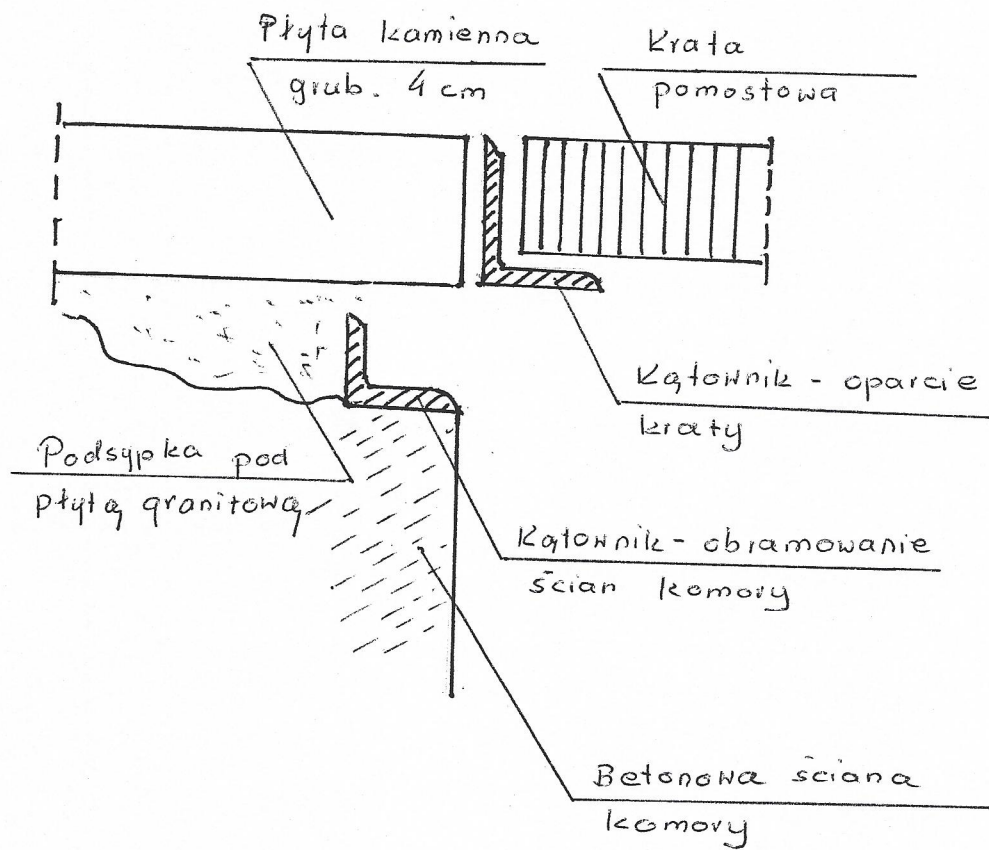 Płyta kamienna
grub. 4 cm
Krata
pomostowa
Kątownik - oparcie
kraty
Podsypka pod
płytą granitową
Kątownik - obramowanie
ścian komory
Betonowa ściana
komory